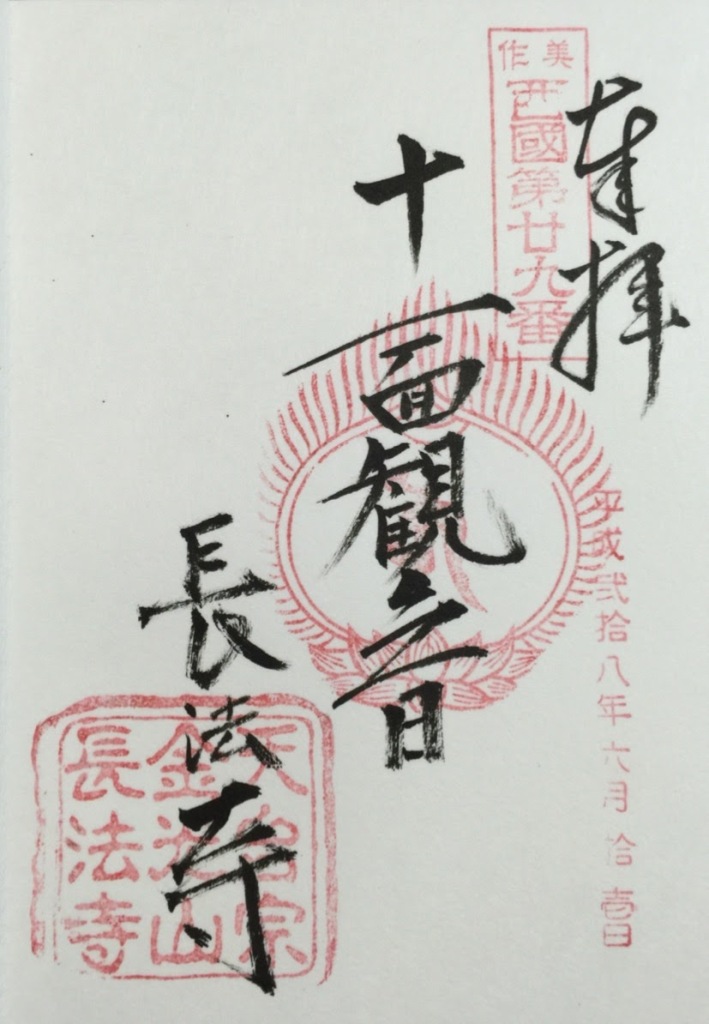 奉拝
美作
西國第廿九番
平成弐拾八年六月拾壹日
十一面観音
長法寺
天台宗
金光山
長法寺